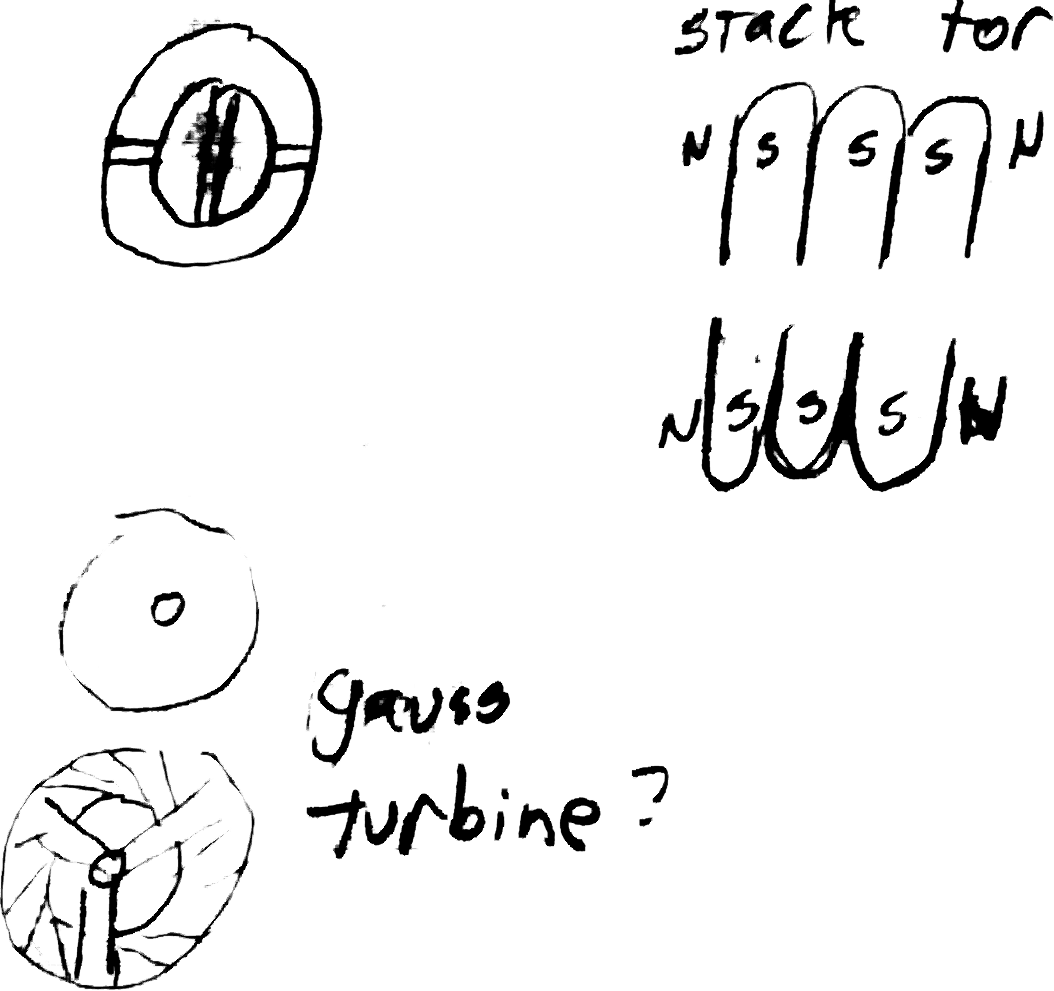 stack for
N S S S N
N S S S N
gauss
turbine?